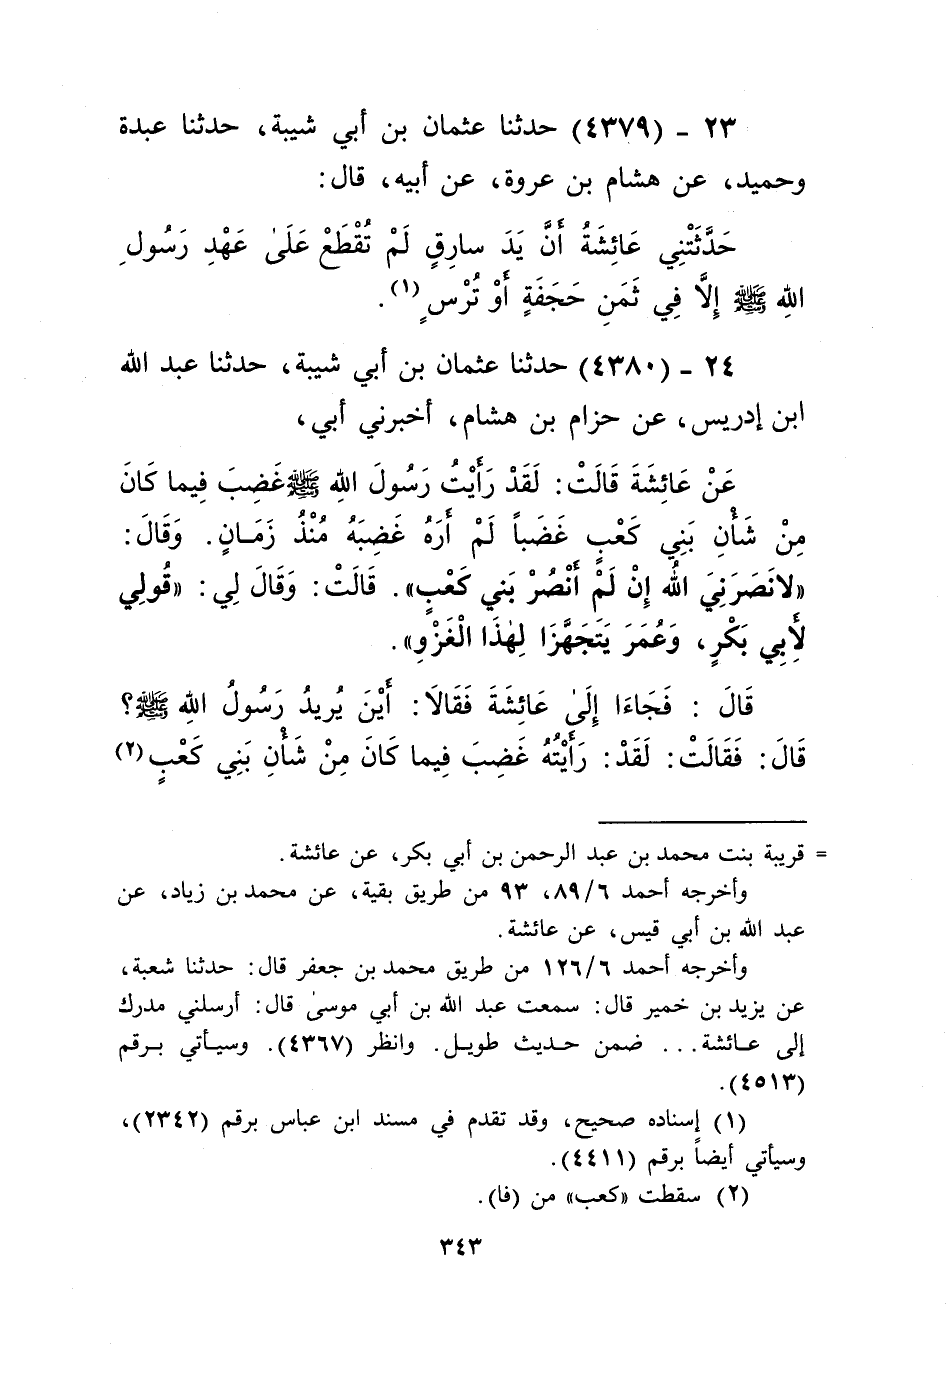 ٢٣ ـ (٤٣٧٩) حدثنا عثمان بن أبي شيبة، حدثنا عبدة
وحميد، عن هشام بن عروة، عن أبيه، قال:
حَدَّثَتْنِي عَائِشَةُ أَنَّ يَدَ سارِقٍ لَمْ تُقْطَعْ عَلَىٰ عَهْدِ رَسُولِ
اللهِ ﷺ إِلَّا فِي ثَمَنِ حَجَفَةٍ أَوْ تُرْسٍ(١).
٢٤ ـ (٤٣٨٠) حدثنا عثمان بن أبي شيبة، حدثنا عبد الله
ابن إدريس، عن حزام بن هشام، أخبرني أبي،
عَنْ عَائِشَةَ قَالَتْ: لَقَدْ رَأَيْتُ رَسُولَ اللهِ ﷺ غَضِبَ فِيما كَانَ
مِنْ شَأْنِ بَنِي كَعْبٍ غَضَباً لَمْ أَرَهُ غَضِبَهُ مُنْذُ زَمَـانٍ. وَقَالَ:
«لانَصَرَنِيَ اللهُ إِنْ لَمْ أَنْصُرْ بَني كَعْبٍ». قَالَتْ: وَقَالَ لِي: «قُولِي
لأَبِي بَكْرٍ، وَعُمَرَ يَتَجَهَّزَا لِهٰذَا الْغَزْوِ».
قَالَ : فَجَاءَا إِلَىٰ عَائِشَةَ فَقَالَا: أَيْنَ يُرِيدُ رَسُولُ اللهِ ﷺ؟
قَالَ: فَقَالَتْ: لَقَدْ: رَأَيْتُهُ غَضِبَ فِيما كَانَ مِنْ شَأْنِ بَنِي كَعْبٍ(٢)
= قريبة بنت محمد بن عبد الرحمن بن أبي بكر، عن عائشة.
وأخرجه أحمد ٨٩/٦، ٩٣ من طريق بقية، عن محمد بن زياد، عن
عبد الله بن أبي قيس، عن عائشة.
وأخرجه أحمد ١٢٦/٦ من طريق محمد بن جعفر قال: حدثنا شعبة،
عن يزيد بن خمير قال: سمعت عبد الله بن أبي موسىٰ قال: أرسلني مدرك
إلى عـائشة... ضمن حـديث طويـل. وانظر (٤٣٦٧). وسيـأتي بـرقم
(٤٥١٣).
(١) إسناده صحيح، وقد تقدم في مسند ابن عباس برقم (٢٣٤٢)،
وسيأتي أيضاً برقم (٤٤١١).
(٢) سقطت «كعب» من (فا).
٣٤٣